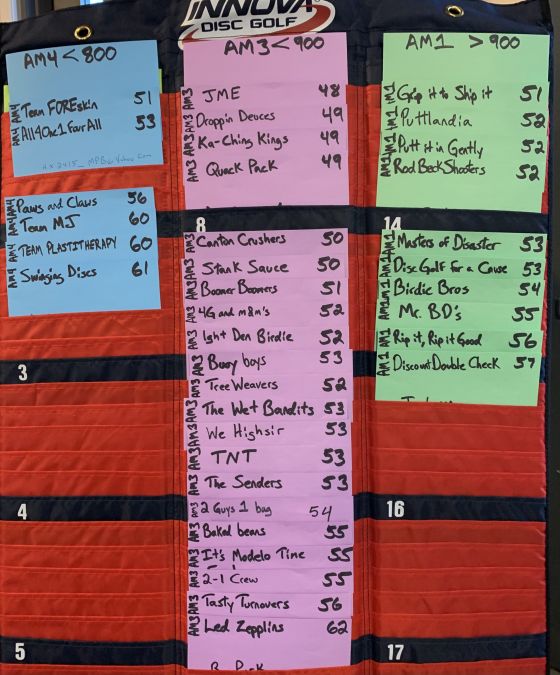 INNOVA
DISC GOLF
AM4 < 800
AM4 Team FOREskin 51
AM4 All4One1FourAll 53
AM4 Paws and Claws 56
AM4 Team MJ 60
AM4 TEAM PLASTITHERAPY 60
AM4 Swinging Discs 61
3
4
5
AM3 < 900
AM3 JME 48
AM3 Droppin Deuces 49
AM3 Ka-Ching Kings 49
AM3 Quack Pack 49
8
AM3 Canton Crushers 50
AM3 Stank Sauce 50
AM3 Boomer Boomers 51
AM3 4G and m&m's 52
AM3 Ight Den Birdie 52
AM3 Buoy boys 53
AM3 Tree Weavers 52
AM3 The Wet Bandits 53
AM3 We Highsir 53
AM3 TNT 53
AM3 The Senders 53
AM3 2 Guys 1 bag 54
AM3 Baked beans 55
AM3 It's Modelo Time 55
AM3 2-1 Crew 55
AM3 Tasty Turnovers 56
AM3 Led Zepplins 62
AM1 > 900
AM1 Grip it to Ship it 51
AM1 Puttlandia 52
AM1 Putt it in Gently 52
AM1 Rod Beck Shooters 52
14
AM1 Masters of Disaster 53
AM1 Disc Golf for a Cause 53
AM1 Birdie Bros 54
AM1 Mr. BD's 55
AM1 Rip it, Rip it Good 56
AM1 Discount Double Check 57
16
17